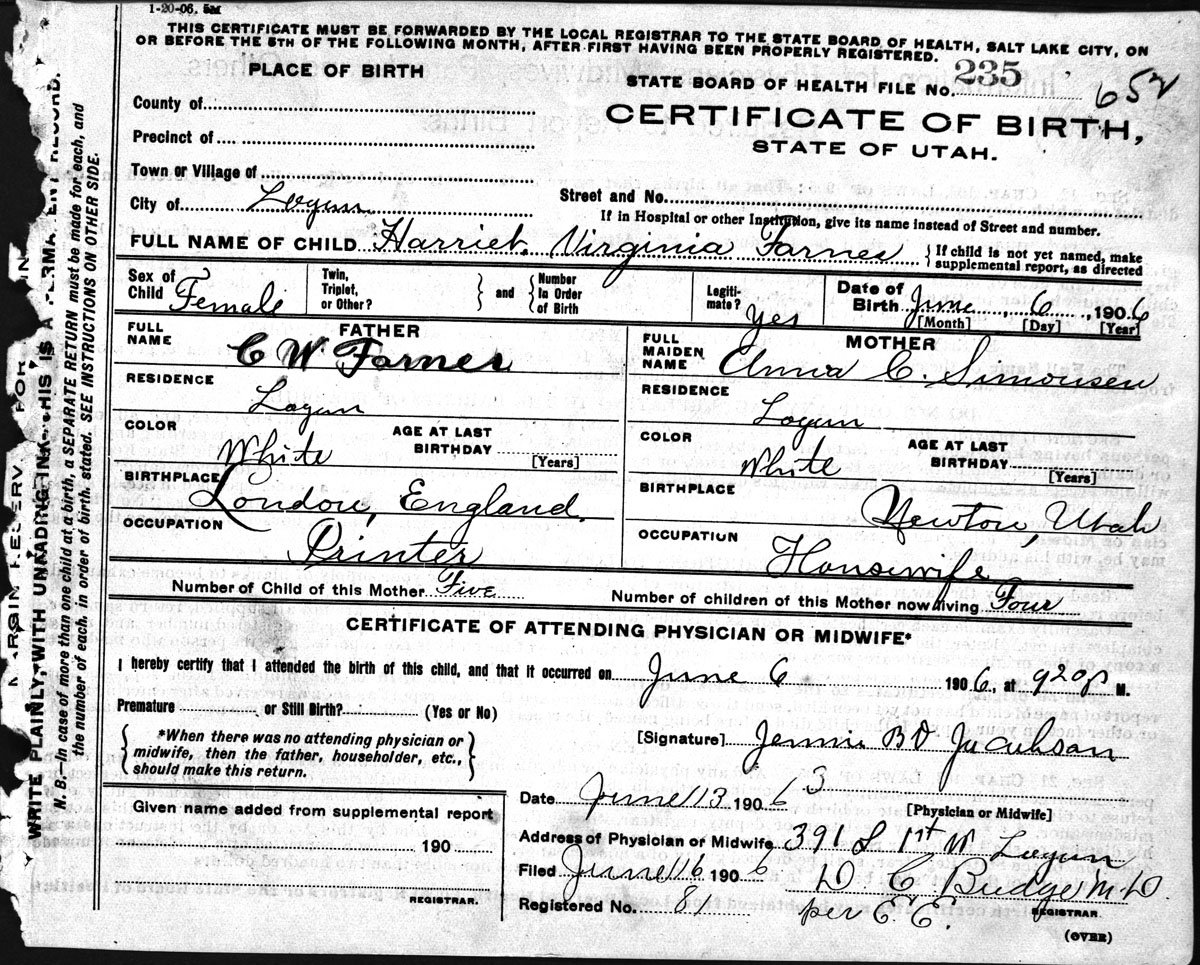 1-20-06, 5M
THIS CERTIFICATE MUST BE FORWARDED BY THE LOCAL REGISTRAR TO THE STATE BOARD OF HEALTH, SALT LAKE CITY, ON
OR BEFORE THE 5TH OF THE FOLLOWING MONTH, AFTER FIRST HAVING BEEN PROPERLY REGISTERED.
PLACE OF BIRTH
STATE BOARD OF HEALTH FILE No. 235 652
County of
CERTIFICATE OF BIRTH,
Precinct of
STATE OF UTAH.
Town or Village of
City of Logan
Street and No.
If in Hospital or other Institution, give its name instead of Street and number.
FULL NAME OF CHILD Harriet Virginia Farnes { If child is not yet named, make supplemental report, as directed
Sex of Child Female Twin, Triplet, or Other? } and { Number In Order of Birth Legiti-mate? yes Date of Birth June 6, 1906
[Month] [Day] [Year]
FATHER
FULL NAME C W Farnes
RESIDENCE
Logan
COLOR White AGE AT LAST BIRTHDAY [Years]
BIRTHPLACE London, England,
OCCUPATION Printer
MOTHER
FULL MAIDEN NAME Anna C. Simonsen
RESIDENCE
Logan
COLOR White AGE AT LAST BIRTHDAY [Years]
BIRTHPLACE Newton, Utah
OCCUPATION Housewife
Number of Child of this Mother Five Number of children of this Mother now living Four
CERTIFICATE OF ATTENDING PHYSICIAN OR MIDWIFE*
I hereby certify that I attended the birth of this child, and that it occurred on June 6 1906, at 920 P M.
Premature or Still Birth? (Yes or No)
{ *When there was no attending physician or
midwife, then the father, householder, etc.,
should make this return. }
[Signature] Jennie B D Jacobson
Date June 13 1906 3
[Physician or Midwife]
Given name added from supplemental report
190
REGISTRAR.
Address of Physician or Midwife 391 S 1st W Logan
Filed June 16 1906 D C Budge M D
Registered No. 81 per E. C. REGISTRAR
(OVER)
WRITE PLAINLY, WITH UNFADING INK—THIS IS A
N. B.—In case of more than one child at a birth, a SEPARATE RETURN must be made for each, and
the number of each, in order of birth, stated. SEE INSTRUCTIONS ON OTHER SIDE.